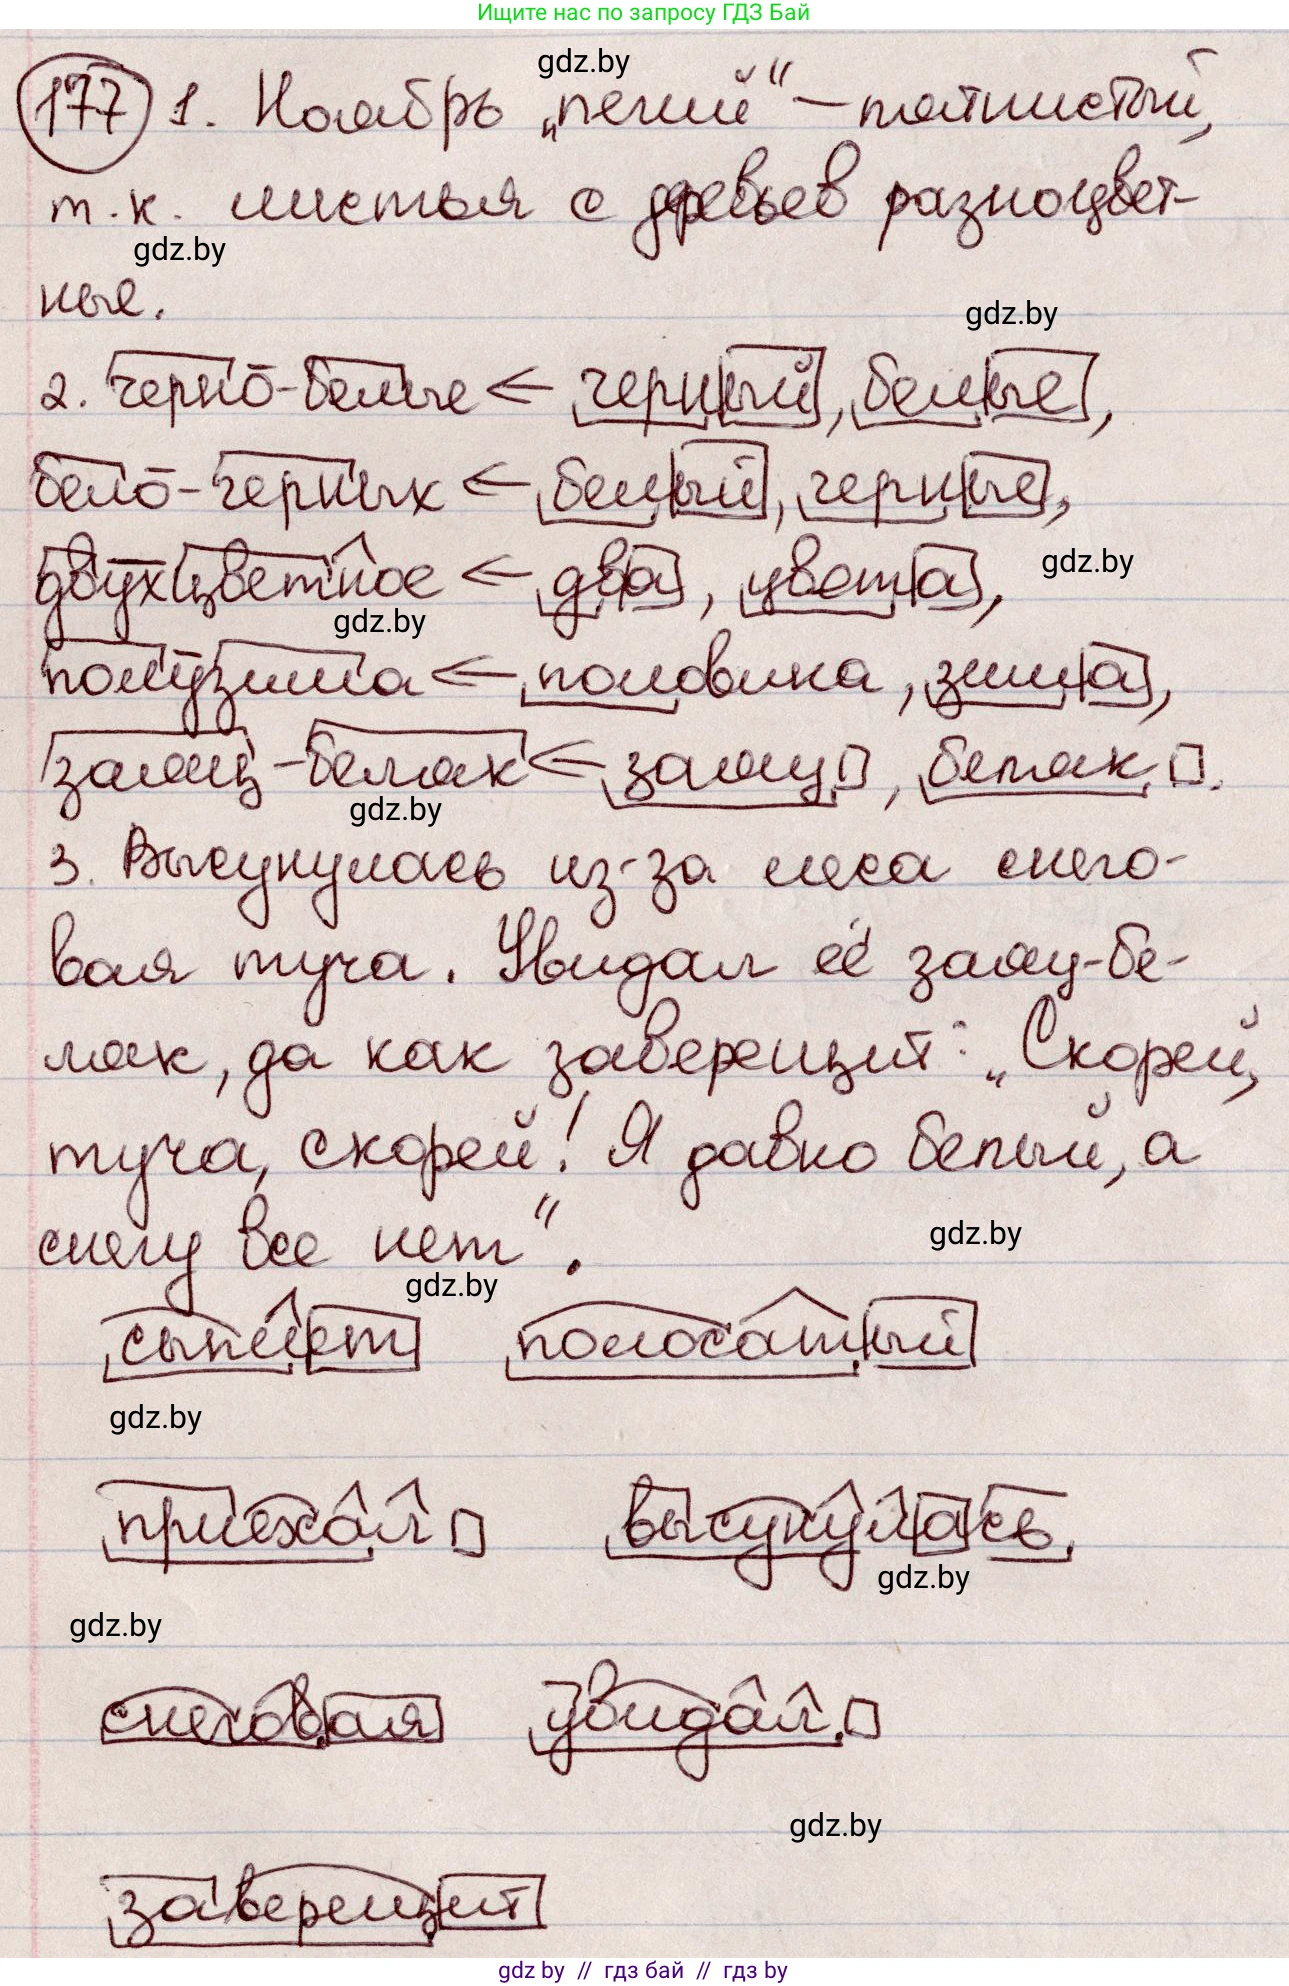 Ищите нас по запросу ГДЗ Бай
gdz.by
177 1. Ноябрь „пегий“ – пятнистый,
т.к. листья с деревьев разноцвет-
gdz.by
ные.
gdz.by
2. черно-белые ← черный, белые,
бело-черных ← белый, черные,
gdz.by
двухцветное ← два, цвета,
gdz.by
полузима ← половина, зима,
заяц-беляк ← заяц, беляк.
gdz.by
3. Высунулась из-за леса снего-
вая туча. Увидал её заяц-бе-
ляк, да как заверещит: „Скорей,
туча, скорей! Я давно белый, а
снегу все нет“.
gdz.by
gdz.by
сыплет полосатый
gdz.by
приехал высунулась
gdz.by
gdz.by
снеговая увидал
gdz.by
заверещит
gdz by // гдз бай // гдз by